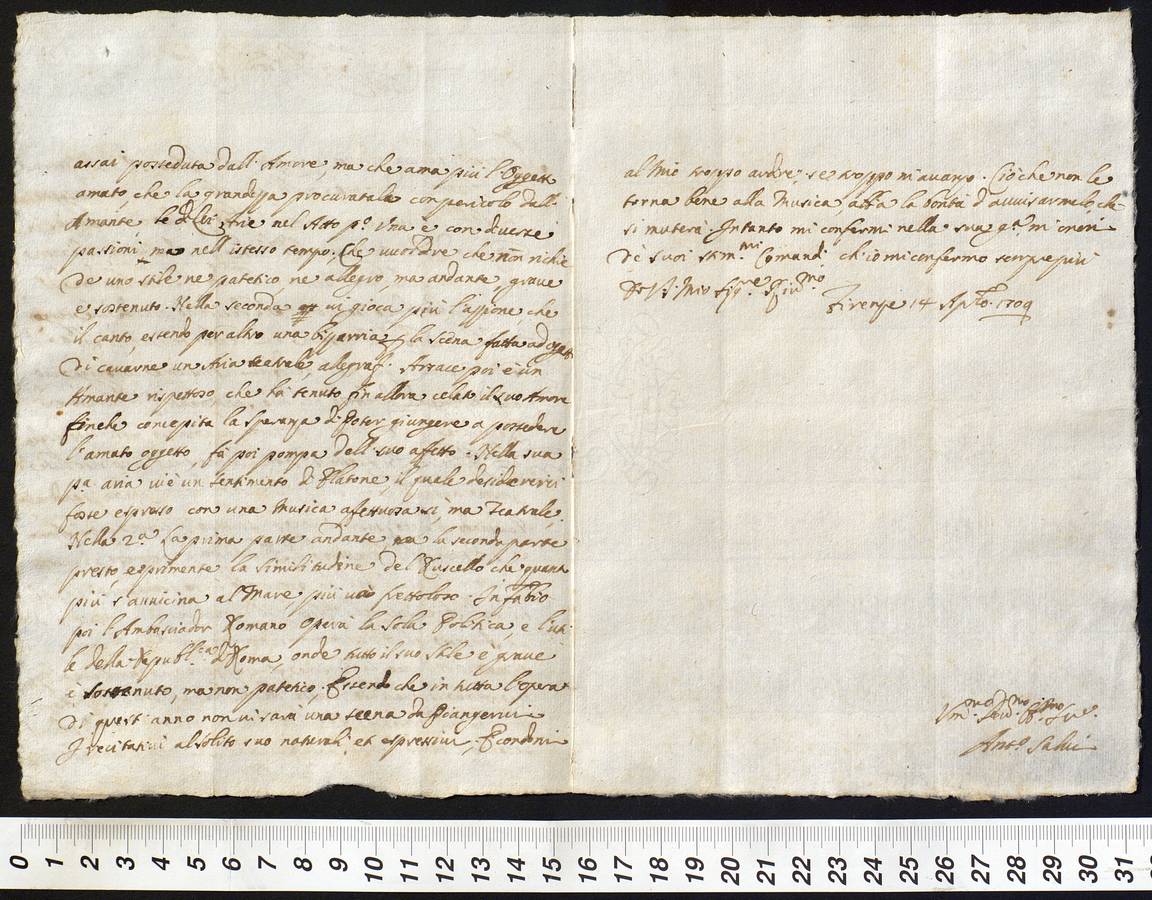 assai posseduta dall' Amore, ma che ama più l'Oggetto
amato, che la grandezza procuratale con pericolo dell'
Amante, le di lei Arie nel Atto pº. Una è con diverse
passioni, ma nell'istesso tempo. Che vuol dire che non richie
de uno stile ne patetico ne allegro, ma andante, grave
e sostenuto. Nella seconda vi gioca più l'azzione, che
il canto, essendo per altro una bizzarria, e la scena fatta ad ogget
di cavarne un Aria teatrale, allegra. Arsace poi è un
Amante rispettoso che ha tenuto fin allora celato il suo Amore
finche concepita la speranza di poter giungere a possedere
l'amato oggetto, fà poi pompa dell suo affetto. Nella sua
pª. aria vi è un sentimento di Platone, il quale desidererei
fosse espresso con una Musica affettuosa si, ma Teatrale.
Nella 2ª. La prima parte andante la seconda parte
presto, esprimente la similitudine del Ruscello che quant
più s'avvicina al Mare più và frettoloso. In Fabio
poi l'Ambasciador Romano opera la sola Politica, e l'uti
le della Republica di Roma, onde tutto il suo stile è grave
e sostenuto, ma non patetico, Essendo che in tutta l'opera
di quest'anno non vi sarà una scena da Piangervi
I recitativi al solito suo naturali, et espressivi, E condoni
al Mio troppo ardire, se troppo m'avanzo. Ciò che non le
torna bene alla Musica, abbia la bontà d'avvisarmelo, che
si muterà. Intanto mi confermi nella sua gª. mi onori
de suoi stim.mi Comandi ch'io mi confermo sempre più
Di V.S. Mio Sig.re
Firenze 14 Ap.le 1709
Ant.º Salvi